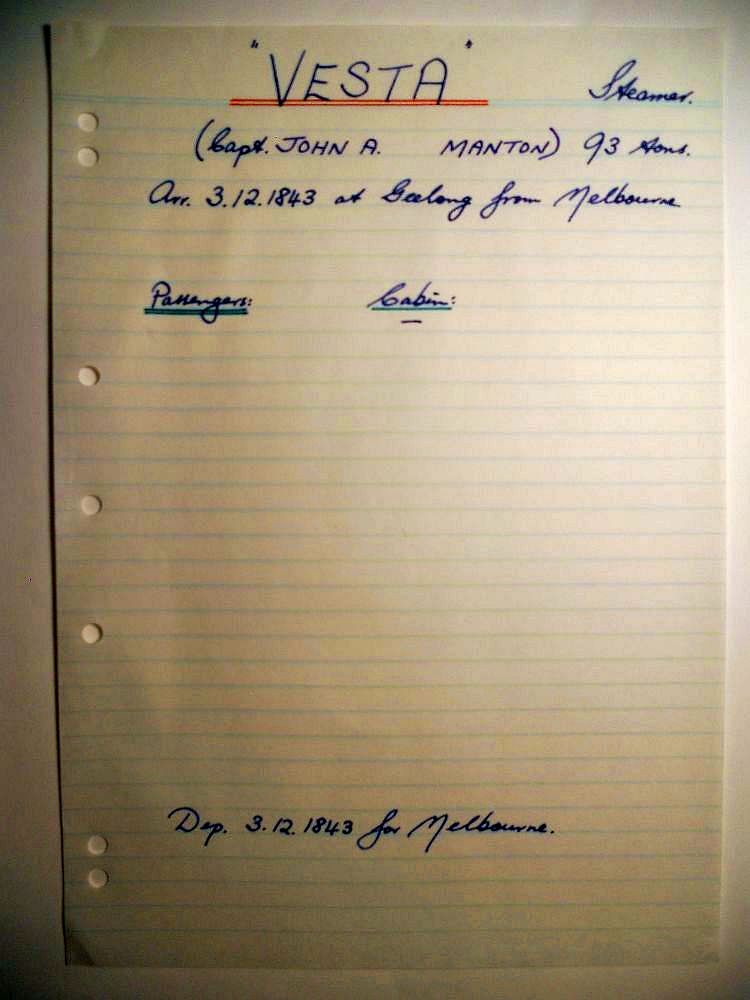 "VESTA" Steamer.
(Capt. JOHN A. MANTON) 93 tons.
Arr. 3.12.1843 at Geelong from Melbourne
Passengers: Cabin:
—
Dep. 3.12.1843 for Melbourne.